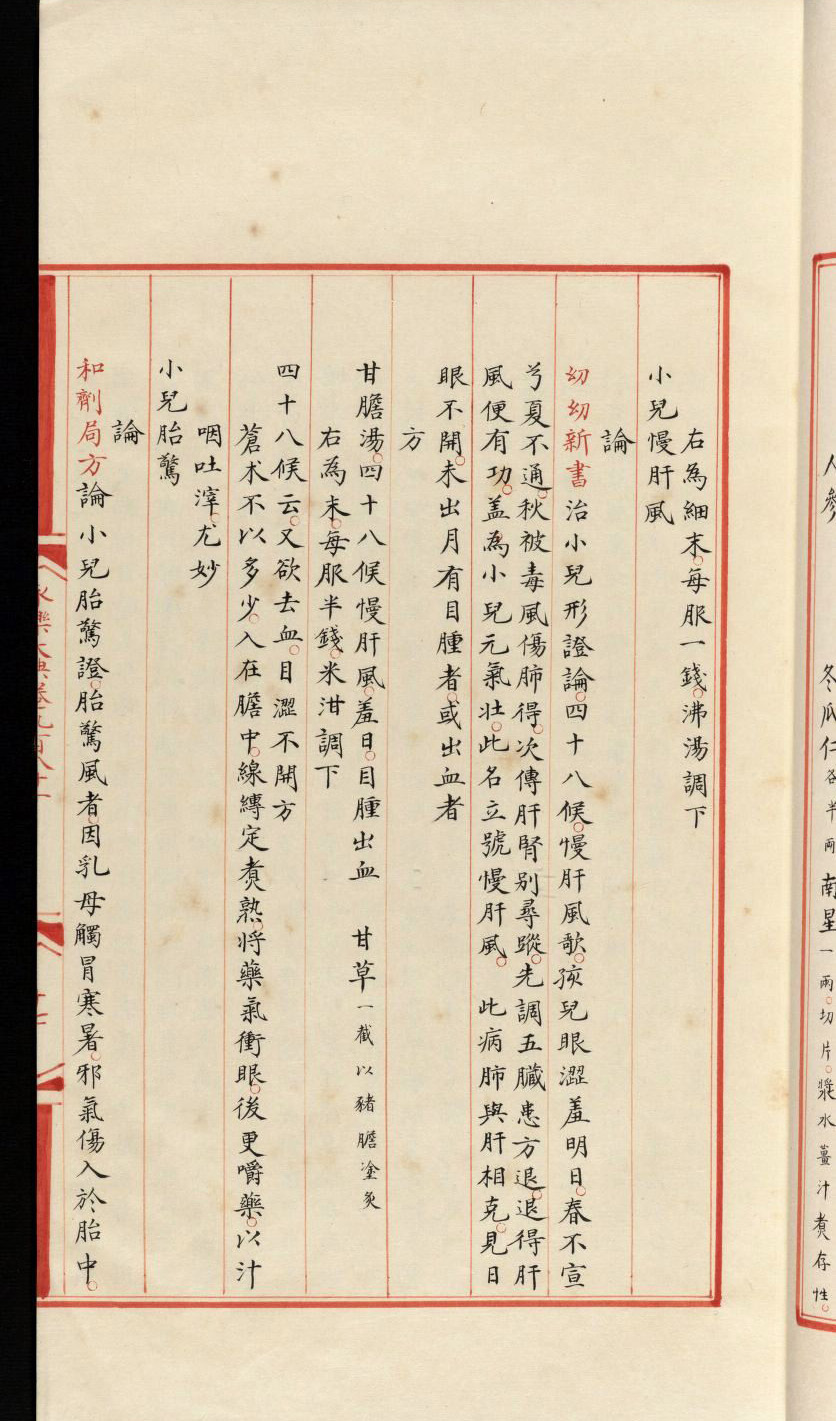 人參　冬瓜仁各半兩南星一兩。切片。漿水薑汁煑存性。
右為細末。每服一錢。沸湯調下
小兒慢肝風
論
幼幼新書治小兒形證論。四十八候。慢肝風歌。孩兒眼澀羞明日。春不宣
兮夏不通。秋被毒風傷肺得。次傳肝腎别尋蹤。先調五臟患方退。退得肝
風便有功。盖為小兒元氣壯。此名立號慢肝風。　此病肺與肝相克。見日
眼不開。未出月有目腫者。或出血者
方
甘膽湯。四十八候慢肝風。羞日。目腫出血　甘草一截以豬膽塗炙
右為末。每服半錢。米泔調下
四十八候云。又欲去血。目澀不開方
蒼朮不以多少。入在膽中。線縳定煑熟。将藥氣衝眼。後更嚼藥。以汁
咽吐滓。尤妙
小兒胎驚
論
和劑局方論小兒胎驚證。胎驚風者。因乳母觸冒寒暑。邪氣傷入於胎中。
永樂大典卷九百八十一